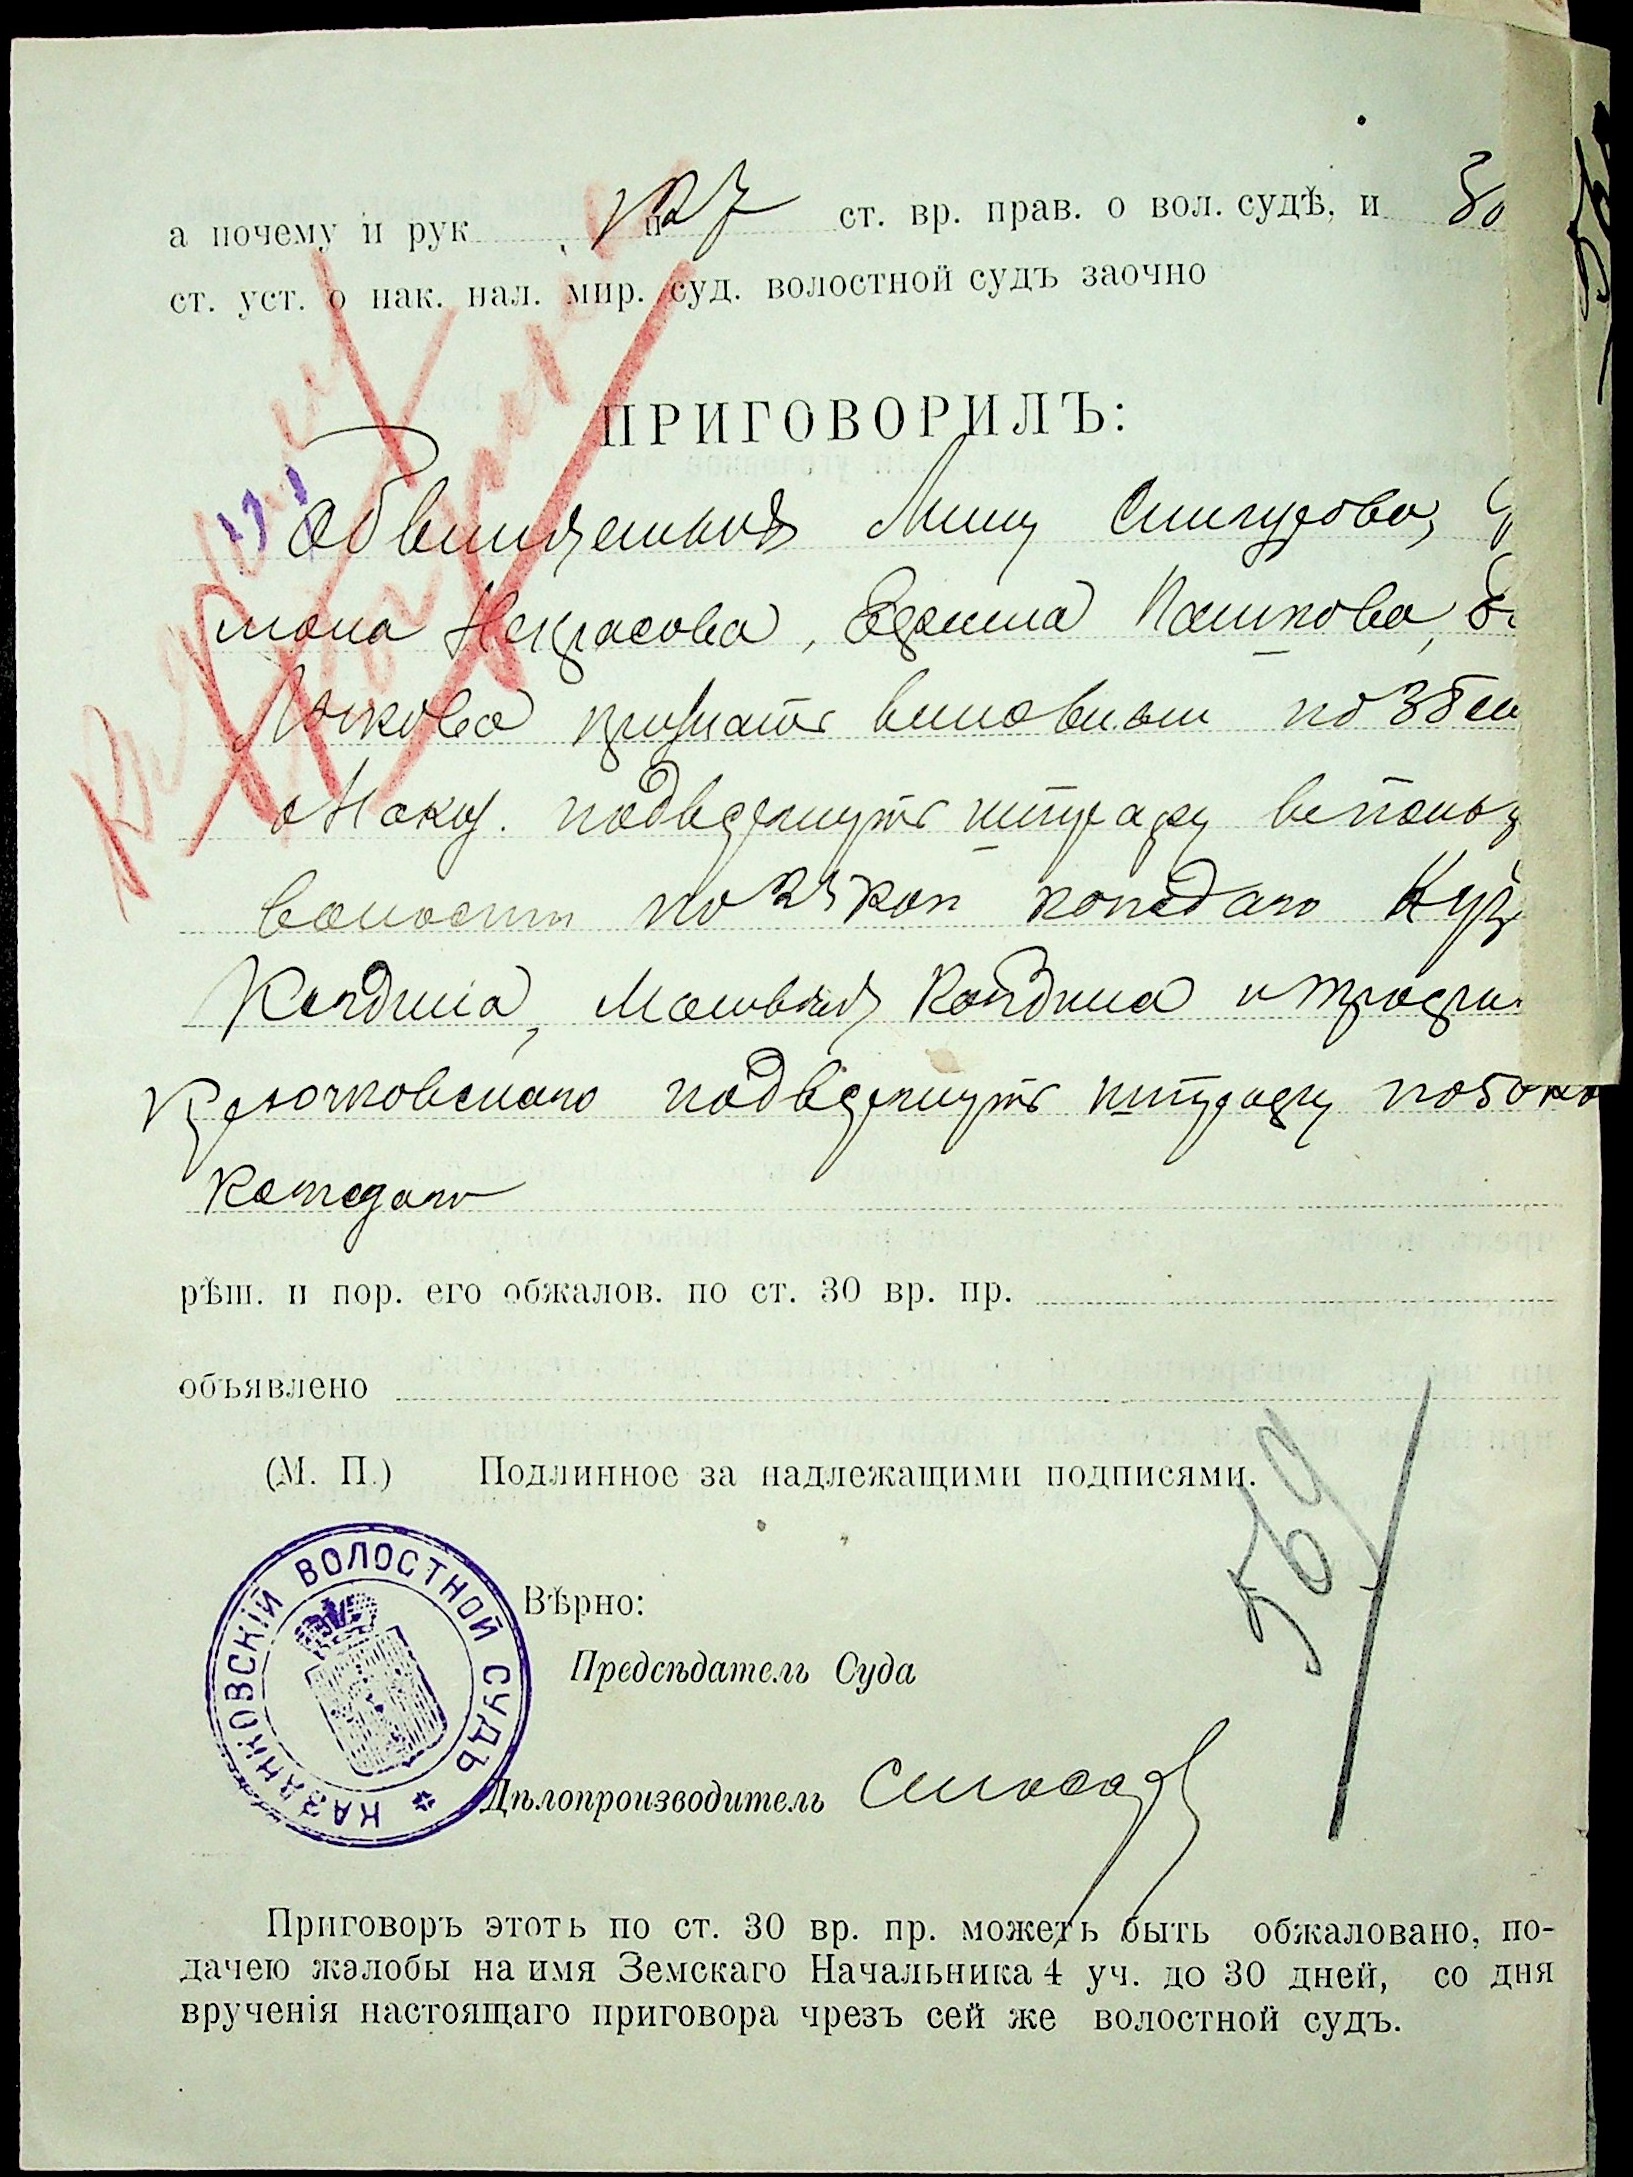 а почему и рук 27 ст. вр. прав. о вол. судѣ, и 30
ст. уст. о нак. нал. мир. суд. волостной судъ заочно
ПРИГОВОРИЛЪ:
Обвиняемыхъ Мину Снигурова,
мона Некрасова, Ефрема Пашкова,
признать виновными по 38 ст
о Наказ. подвергнуть штрафу въ пользу
волости по 25 коп каждаго Кузь
Кондина, Матвѣя Кондина и Трофи
Крючковскаго подвергнуть штрафу по 50 ко
каждаго
рѣш. и пор. его обжалов. по ст. 30 вр. пр.
объявлено
(М. П.) Подлинное за надлежащими подписями.
569
КАЗАНКОВСКІЙ ВОЛОСТНОЙ СУДЪ
Вѣрно:
Предсѣдатель Суда
Дѣлопроизводитель
Приговоръ этотъ по ст. 30 вр. пр. можетъ быть обжаловано, по-
дачею жалобы на имя Земскаго Начальника 4 уч. до 30 дней, со дня
врученія настоящаго приговора чрезъ сей же волостной судъ.